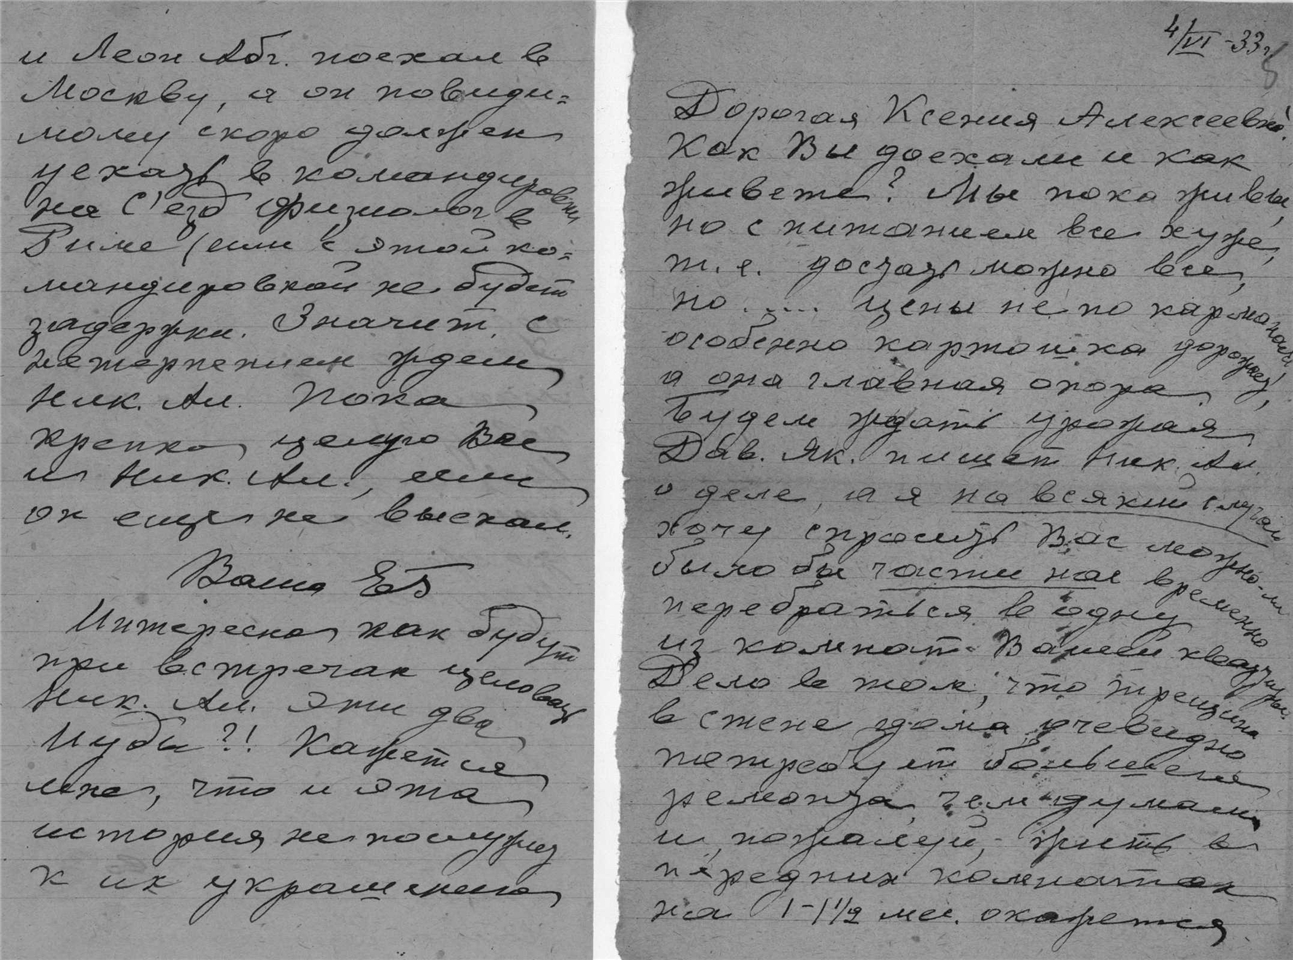 и Леон Абг. поехал в
Москву, а он повиди=
мому скоро должен
уехать в командировку
на С'езд физиолог в
Риме (если с этой ко=
мандировкой не будет
задержки. Значит, с
нетерпением ждем
Ник. Ал. Пока
крепко целую Вас
и Ник. Ал., если
он еще не выехал.
Ваша ЕБ
Интересно как будут
при встречах целовать
Ник. Ал. эти два
Иуды?!! Кажется
мне, что и эта
история не послужит
к их украшению
4/VI-33 г.
Дорогая Ксения Алексеевна!
Как Вы доехали и как
живете? Мы пока живы,
но с питанием все хуже,
т.е. достать можно все,
но ..... цены не по карманам
особенно картошка дорожает,
а она главная опора
Будем ждать урожая
Дав. Як. пишет Ник. Ал.
о деле, а я на всякий случай
хочу спросить Вас можно-ли
было бы части нас временно
перебраться в одну
из комнат Вашей квартиры.
Дело в том, что трещина
в стене дома очевидно
потребует большего
ремонта, чем думали
и, пожалуй, жить в
передних комнатах
на 1-1 1/2 мес. окажется